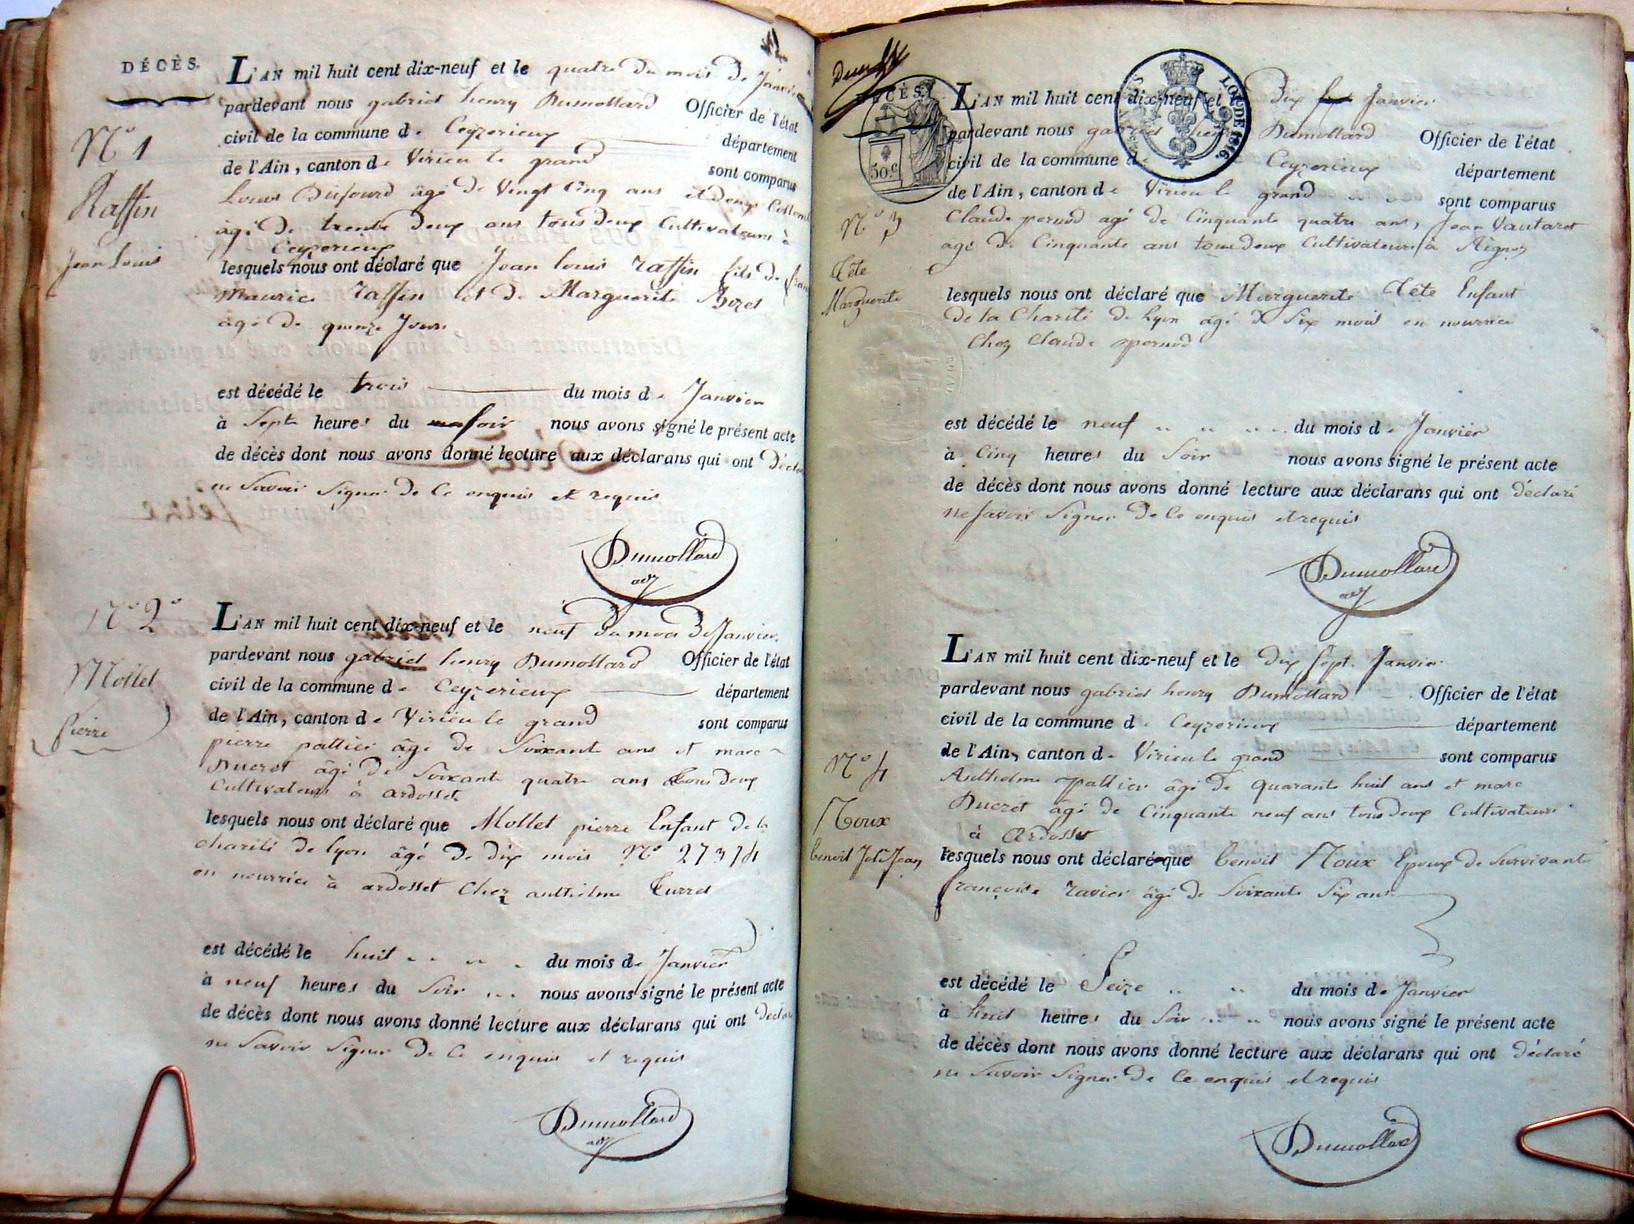 DÉCÈS.
L'AN mil huit cent dix-neuf et le quatre du mois de Janvier
pardevant nous gabriel henry Dumollard Officier de l'état
civil de la commune de Ceyzerieux département
de l'Ain, canton de Virieu le grand sont comparus
Louis Dufourd âgé de Vingt Cinq ans et
âgé de trente deux ans tous deux Cultivateurs à
Ceyzerieux
lesquels nous ont déclaré que Jean louis Raffin fils de
Maurice Raffin et de Marguerite
âgé de quinze Jours
est décédé le trois du mois de Janvier
à Sept heures du soir nous avons signé le présent acte
de décès dont nous avons donné lecture aux déclarans qui ont déclaré
ne Savoir Signer de Ce enquis et requis
Dumollard
adj
N° 1
Raffin
Jean Louis
N° 2
Mollet
Pierre
L'AN mil huit cent dix-neuf et le neuf du mois de Janvier
pardevant nous gabriel henry Dumollard Officier de l'état
civil de la commune de Ceyzerieux département
de l'Ain, canton de Virieu le grand sont comparus
pierre pallier âgé de Soixante ans et marc
Ducret âgé de Soixante quatre ans tous deux
Cultivateurs à ardosset
lesquels nous ont déclaré que Mollet pierre Enfant de la
charité de lyon âgé de dix mois N° 27314
en nourrice à ardosset Chez anthelme Turrel
est décédé le huit du mois de Janvier
à neuf heures du Soir nous avons signé le présent acte
de décès dont nous avons donné lecture aux déclarans qui ont déclaré
ne Savoir Signer de Ce enquis et requis
Dumollard
adj
DÉCÈS.
50.c
LOI DE 1816.
L'AN mil huit cent dix-neuf et Dix Janvier
pardevant nous gabriel henry Dumollard Officier de l'état
civil de la commune de Ceyzerieux département
de l'Ain, canton de Virieu le grand sont comparus
Claude pernod agé de Cinquante quatre ans, Jean Vautaret
agé de Cinquante ans tous deux Cultivateurs à Aignoz
lesquels nous ont déclaré que Marguerite Tête Enfant
de la Charité de Lyon âgé de Six mois en nourrice
Chez Claude pernod
est décédé le neuf du mois de Janvier
à Cinq heures du Soir nous avons signé le présent acte
de décès dont nous avons donné lecture aux déclarans qui ont déclaré
ne Savoir Signer de Ce enquis et requis
Dumollard
adj
N° 3
Tête
Marguerite
L'AN mil huit cent dix-neuf et le dix Sept Janvier
pardevant nous gabriel henry Dumollard Officier de l'état
civil de la commune de Ceyzerieux département
de l'Ain, canton de Virieu le grand sont comparus
Anthelme pallier âgé de quarante huit ans et marc
Ducret âgé de Cinquante neuf ans tous deux Cultivateurs
à Ardosset
lesquels nous ont déclaré que benoit Roux Epoux de Survivante
françoise ravier âgé de Soixante Six ans
est décédé le Seize du mois de Janvier
à huit heures du Soir nous avons signé le présent acte
de décès dont nous avons donné lecture aux déclarans qui ont déclaré
ne Savoir Signer de Ce enquis et requis
Dumollard
N° 4
Roux
benoit Jean